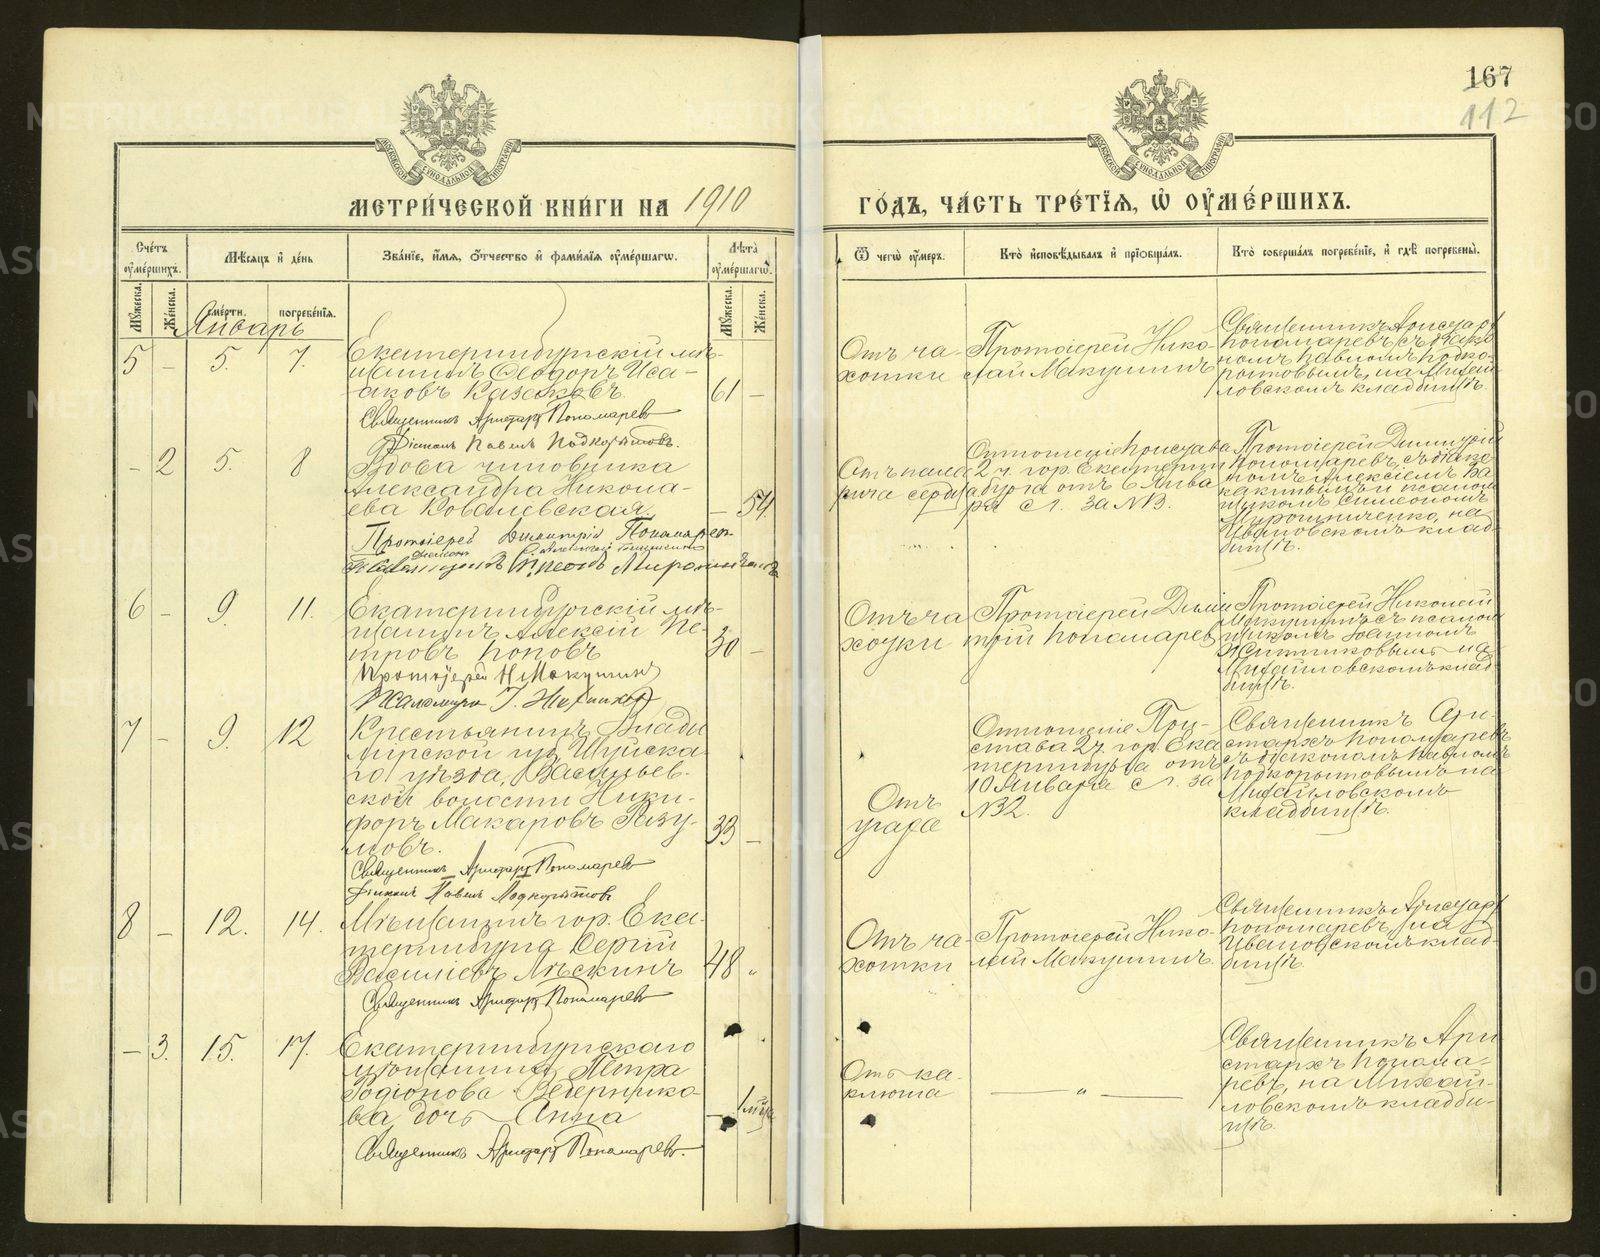 167
112
МЕТРИ́ЧЕСКОЙ КНИ́ГИ НА 1910
ГО́ДЪ, ЧА́СТЬ ТРЕ́ТІЯ, Ѡ҆ ОУ҆МЕ́РШИХЪ.
Сче́тъ оу҆ме́ршихъ.
Мѣ́сяцъ и҆ де́нь
Зва́ніе, и҆́мя, ѻ҆́тчество и҆ фами́лія оу҆ме́ршагѡ.
Лѣ́та оу҆ме́ршагѡ.
Ѿ чегѡ̀ оу҆́меръ.
Кто̀ и҆сповѣ́дывалъ и҆ пріѡбща́лъ.
Кто̀ соверша́лъ погребе́ніе, и҆ гдѣ̀ погребены̀.
Му́жеска.
Же́нска.
сме́рти.
погребе́нія.
Му́жеска.
Же́нска.
Январь
5 – 5. 7.
Екатеринбургскій мѣ-
щанинъ Ѳеодоръ Иса-
аковъ Казаковъ.
61 –
Священникъ Аристархъ Пономаревъ
Діаконъ Павелъ Подкорытовъ.
Отъ ча-
хотки
Протоіерей Нико-
лай Макушинъ
Священникъ Аристархъ
Пономаревъ съ діако-
номъ Павломъ Подко-
рытовымъ, на Михай-
ловскомъ кладбищѣ.
– 2 5. 8
Вдова чиновника
Александра Никола-
ева Ковалевская.
– 54
Протоіерей Димитрій Пономаревъ
Псаломщикъ Симеонъ Мирошниченко
Отъ пара-
лича сердца
Отношеніе Пристава
2 ч. гор. Екатерин-
бурга отъ 6 Янва-
ря с. г. за № 3.
Протоіерей Димитрій
Пономаревъ, съ діако-
номъ Алексіемъ
и псалом-
щикомъ Симеономъ
Мирошниченко, на
Ивановскомъ клад-
бищѣ.
6 – 9. 11.
Екатеринбургскій мѣ-
щанинъ Алексій Пе-
тровъ Поповъ
30 –
Протоіерей Н Макушинъ
Псаломщикъ І.
Отъ ча
хотки
Протоіерей Дими
трій Пономаревъ
Протоіерей Николай
Макушинъ съ псалом
щикомъ Іоанномъ
на
Михайловскомъ клад-
бищѣ.
7 – 9. 12
Крестьянинъ Влади
мірской губ. Шуйска-
го уѣзда, Васильев-
ской волости Ники-
форъ Макаровъ Разу-
мовъ.
33 –
Священникъ Аристархъ Пономаревъ
Діаконъ Павелъ Подкорытовъ
Отъ
угара
Отношеніе При-
става 2 ч. гор. Ека
теринбурга отъ
10 Января с. г. за
№ 32.
Священникъ Ари-
стархъ Пономаревъ
съ діакономъ Павломъ
Подкорытовымъ на
Михайловскомъ
кладбищѣ.
8 – 12. 14.
Мѣщанинъ гор. Ека-
теринбурга Сергій
Василіевъ Лѣскинъ
48 "
Священникъ Аристархъ Пономаревъ
Отъ ча-
хотки
Протоіерей Нико-
лай Макушинъ.
Священникъ Аристархъ
Пономаревъ, на
Ивановскомъ клад-
бищѣ.
– 3. 15. 17.
Екатеринбургскаго
мѣщанина Петра
Родіонова Ведернико-
ва дочь Анна
– 1 мѣс
Священникъ Аристархъ Пономаревъ.
Отъ ко-
клюша
— " —
Священникъ Ари
стархъ Понома-
ревъ, на Михай-
ловскомъ кладби-
щѣ.